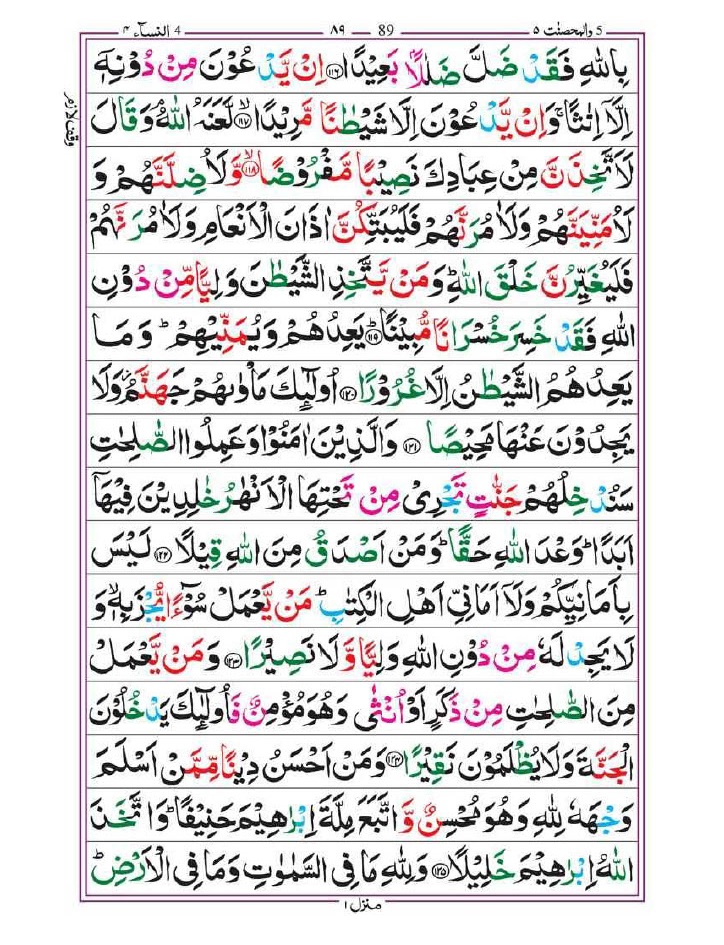 5 والمحصنت ۵ 89 ۸۹ 4 النسآء ۴
بِاللّٰهِ فَقَدْ ضَلَّ ضَلٰلًاۢ بَعِيْدًا ﴿۱۱۶﴾ اِنْ يَّدْعُوْنَ مِنْ دُوْنِهٖۤ
اِلَّاۤ اِنٰثًا ۚ وَاِنْ يَّدْعُوْنَ اِلَّا شَيْطٰنًا مَّرِيْدًا ﴿۱۱۷﴾ۙ لَّعَنَهُ اللّٰهُ ۘ وَقَالَ
وقف لازم
لَاَتَّخِذَنَّ مِنْ عِبَادِكَ نَصِيْبًا مَّفْرُوْضًا ﴿۱۱۸﴾ۙ وَّلَاُضِلَّنَّهُمْ وَ
لَاُمَنِّيَنَّهُمْ وَلَاٰمُرَنَّهُمْ فَلَيُبَتِّكُنَّ اٰذَانَ الْاَنْعَامِ وَلَاٰمُرَنَّهُمْ
فَلَيُغَيِّرُنَّ خَلْقَ اللّٰهِ ؕ وَمَنْ يَّتَّخِذِ الشَّيْطٰنَ وَلِيًّا مِّنْ دُوْنِ
اللّٰهِ فَقَدْ خَسِرَ خُسْرَانًا مُّبِيْنًا ﴿۱۱۹﴾ؕ يَعِدُهُمْ وَيُمَنِّيْهِمْ ؕ وَمَا
يَعِدُهُمُ الشَّيْطٰنُ اِلَّا غُرُوْرًا ﴿۱۲۰﴾ اُولٰٓئِكَ مَاْوٰىهُمْ جَهَنَّمُ ؗ وَلَا
يَجِدُوْنَ عَنْهَا مَحِيْصًا ﴿۱۲۱﴾ وَالَّذِيْنَ اٰمَنُوْا وَعَمِلُوا الصّٰلِحٰتِ
سَنُدْخِلُهُمْ جَنّٰتٍ تَجْرِيْ مِنْ تَحْتِهَا الْاَنْهٰرُ خٰلِدِيْنَ فِيْهَاۤ
اَبَدًا ؕ وَعْدَ اللّٰهِ حَقًّا ؕ وَمَنْ اَصْدَقُ مِنَ اللّٰهِ قِيْلًا ﴿۱۲۲﴾ لَيْسَ
بِاَمَانِيِّكُمْ وَلَاۤ اَمَانِيِّ اَهْلِ الْكِتٰبِ ؕ مَنْ يَّعْمَلْ سُوْٓءًا يُّجْزَ بِهٖ ۙ وَ
لَا يَجِدْ لَهٗ مِنْ دُوْنِ اللّٰهِ وَلِيًّا وَّلَا نَصِيْرًا ﴿۱۲۳﴾ وَمَنْ يَّعْمَلْ
مِنَ الصّٰلِحٰتِ مِنْ ذَكَرٍ اَوْ اُنْثٰى وَهُوَ مُؤْمِنٌ فَاُولٰٓئِكَ يَدْخُلُوْنَ
الْجَنَّةَ وَلَا يُظْلَمُوْنَ نَقِيْرًا ﴿۱۲۴﴾ وَمَنْ اَحْسَنُ دِيْنًا مِّمَّنْ اَسْلَمَ
وَجْهَهٗ لِلّٰهِ وَهُوَ مُحْسِنٌ وَّاتَّبَعَ مِلَّةَ اِبْرٰهِيْمَ حَنِيْفًا ؕ وَاتَّخَذَ
اللّٰهُ اِبْرٰهِيْمَ خَلِيْلًا ﴿۱۲۵﴾ وَلِلّٰهِ مَا فِى السَّمٰوٰتِ وَمَا فِى الْاَرْضِ ؕ
منزل ۱